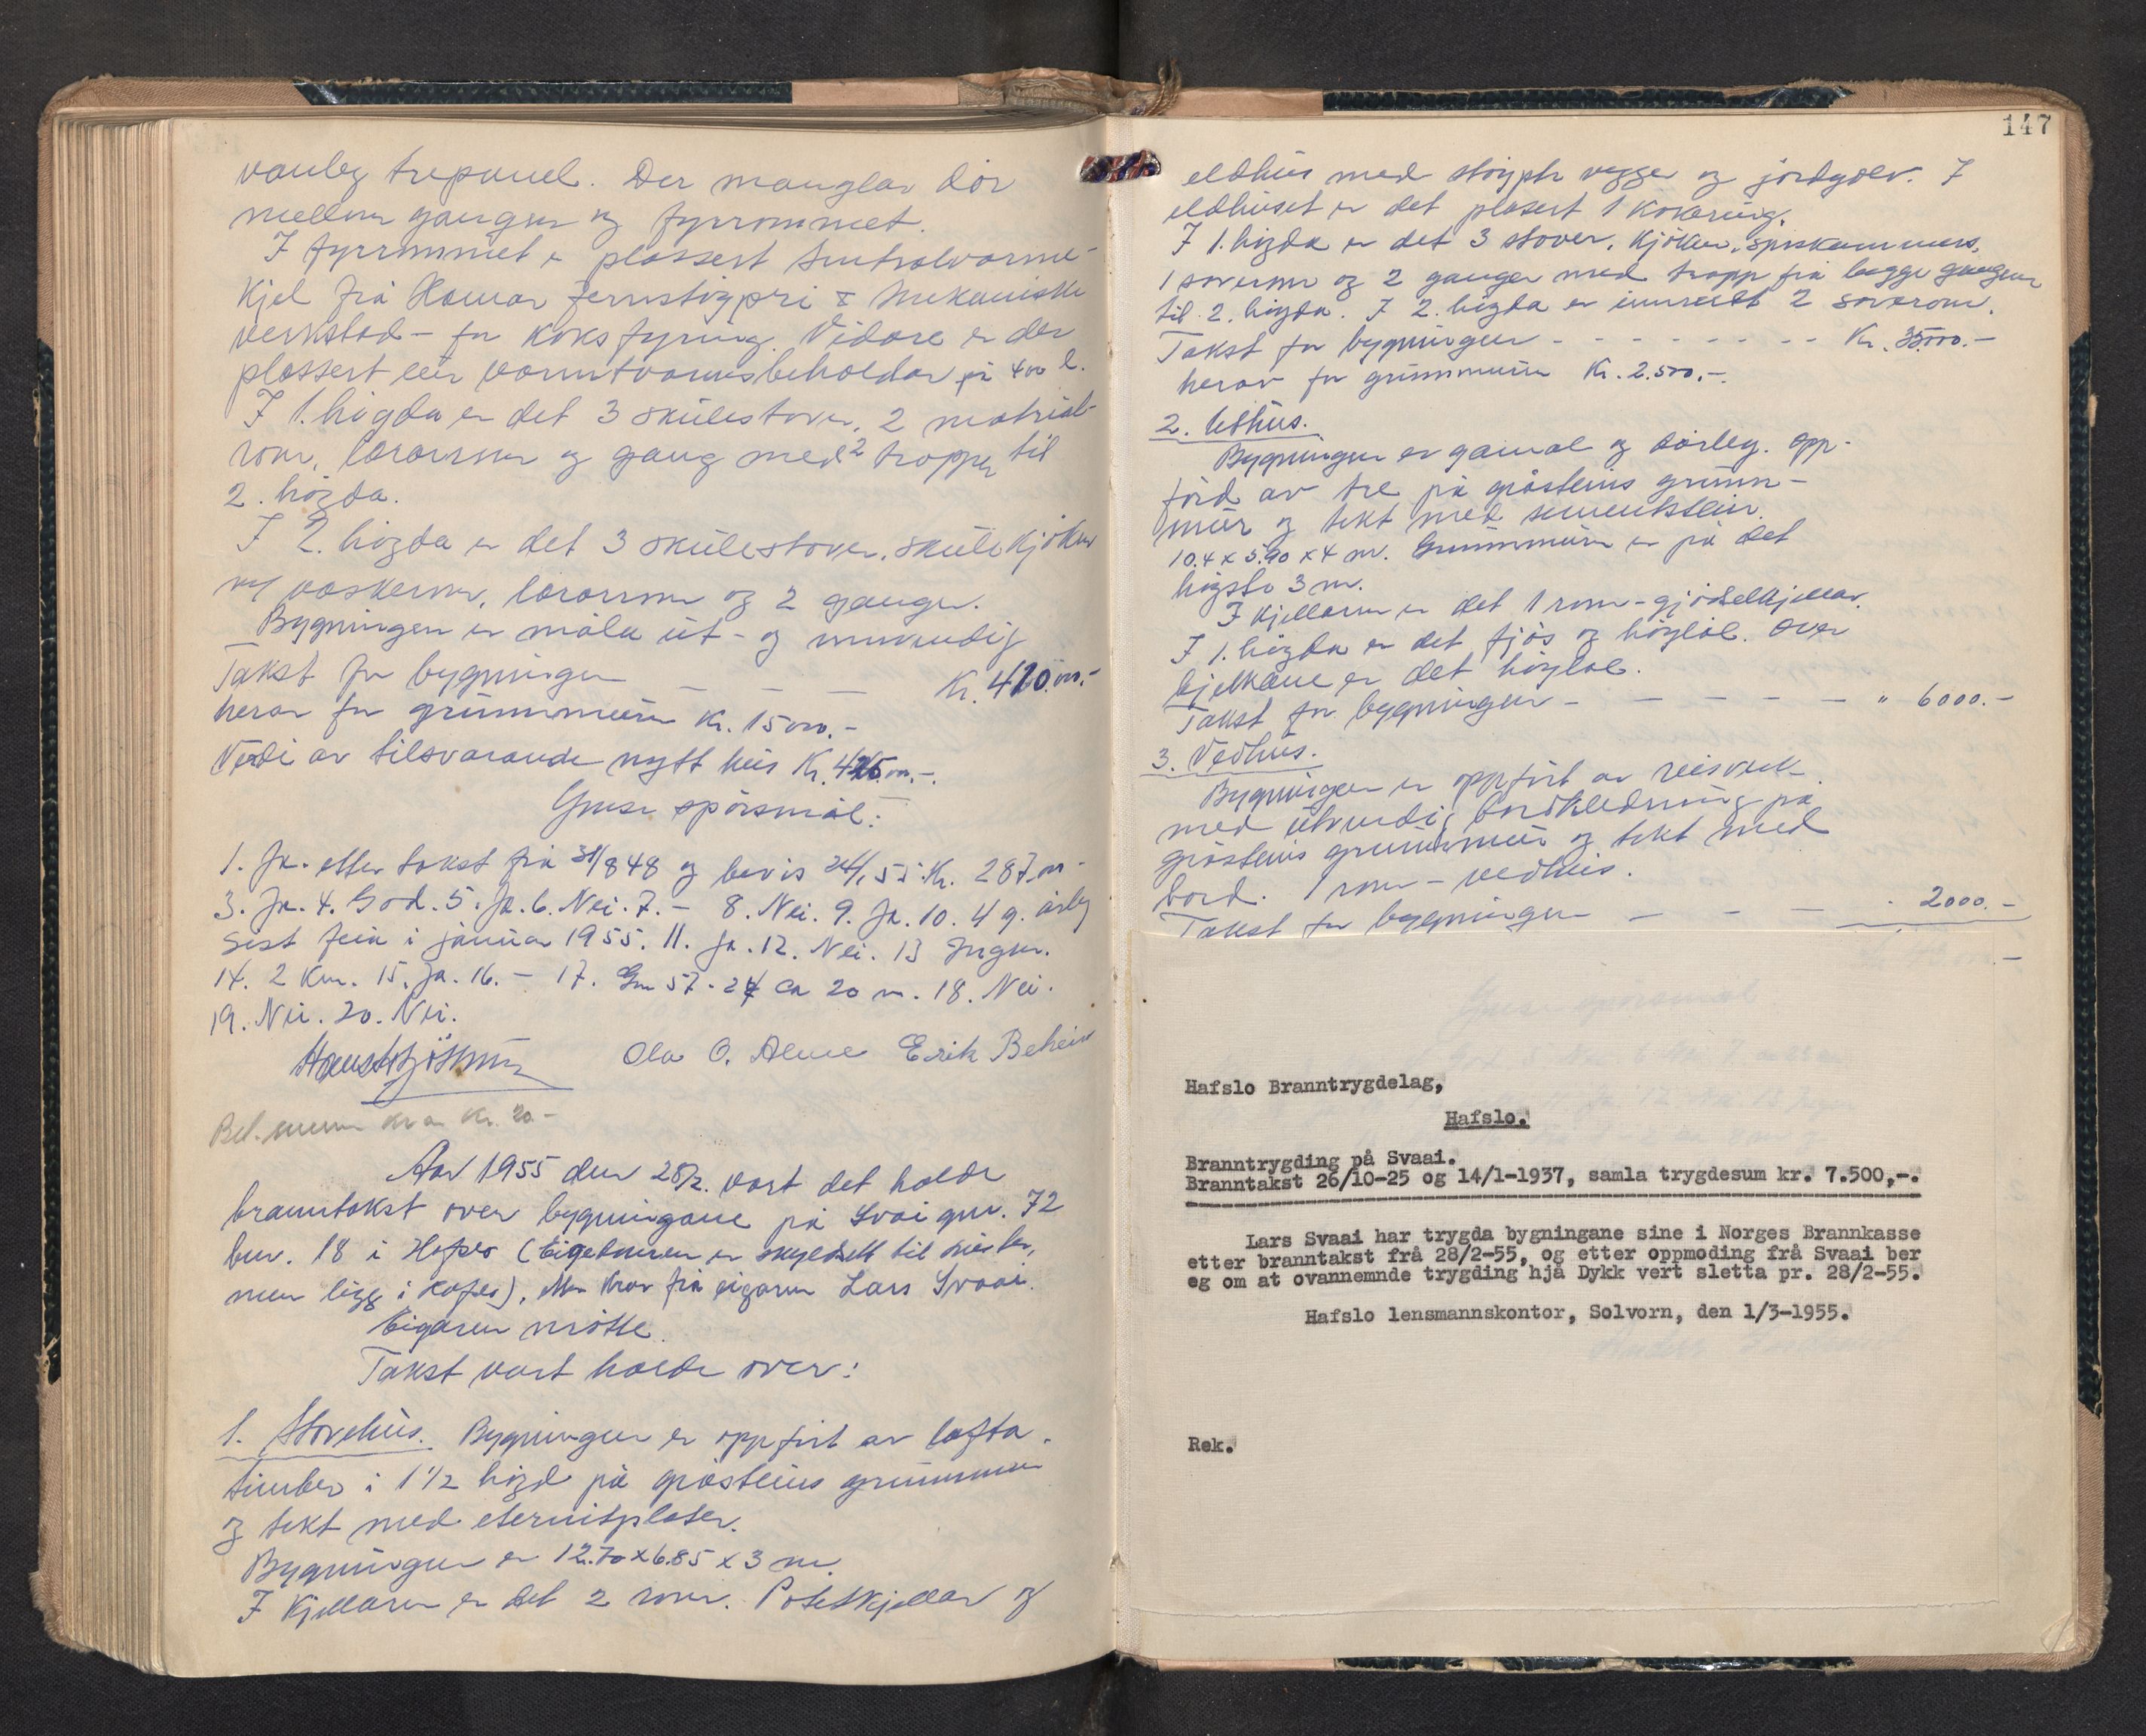 vanleg trepanel. Der manglar dör
mellom gangen og fyrrommet.
I fyrrommet er plassert sentralvarme-
kjel frå Hamar jernstöyperi & Mekaniske
verkstad - for koksfyring. Vidare er der
plassert ein varmtvannsbeholdar på 400 l.
I 1. högda er det 3 skulestover, 2 matrial-
rom, lærarrom og gang med 2 trapper til
2. högda.
I 2. högda er det 3 skulestover, skulekjöken
m/ vaskerom, lærarrom og 2 ganger.
Bygningen er måla ut- og innvendig
Takst for bygningen — — — Kr. 410.000.-
herav for grunnmuren Kr. 15000.-
Verdi av tilsvarande nytt hus Kr. 425.000.-.
Ymse spörsmål:
1. Ja. etter takst frå 31/8 48 og bevis 24/1 55: Kr. 287.000
3. Ja. 4. God. 5. Ja. 6. Nei. 7. - 8. Nei. 9. Ja. 10. 4 g. årleg
sist feia i januar 1955. 11. Ja. 12. Nei. 13 Ingen.
14. 2 km. 15. Ja. 16. - 17. Gnr 57. 24 ca 20 m. 18. Nei.
19. Nei. 20. Nei.
Ola O. Alme Erik Beheim
Bel. Kr. 20 -
Aar 1955 den 28/2. vart det halde
branntakst over bygningane på Svai gnr. 72
bnr. 18 i Hafslo (Eigedomen er skyldsett til Luster,
men ligg i Hafslo), etter krav frå eigaren Lars Svaai.
Eigaren mötte.
Takst vart halde over:
1. Stovehus. Bygningen er oppfört av lafta
timber i 1 1/2 högd på gråsteins grunnmur
og tekt med eternitplater.
Bygningen er 12.70 x 6.85 x 3 m.
I kjellaren er det 2 rom. Potetkjellar og
147
eldhus med stöypte vegger og jordgolv. I
eldhuset er det plasert 1 kokering.
I 1. högda er det 3 stover, kjöken, spiskammers,
1 soverom og 2 ganger med trapp frå begge gangene
til 2. högda. I 2. högda er innreidt 2 soverom.
Takst for bygningen - - - - - - - - Kr. 35000.-
herav for grunnmuren Kr. 2.500,-.
2. Uthus.
Bygningen er gamal og dårleg. Opp-
förd av tre på gråsteins grunn-
mur og tekt med sementstein.
10.4 x 5.90 x 4 m. Grunnmuren er på det
högste 3 m.
I kjellaren er det 1 rom - gjödselkjellar.
I 1. högda er det fjös og höylöe. Over
bjelkane er det höyloe.
Takst for bygningen - — — — — — " 6000.-
3. Vedhus.
Bygningen er oppfört av reisverk
med utvendig bordkledning på
gråsteins grunnmur og tekt med
bord. 1 rom - vedhus.
Takst for bygningen — — — " 2000.-
Hafslo Branntrygdelag,
Hafslo.
Branntrygding på Svaai.
Branntakst 26/10-25 og 14/1-1937, samla trygdesum kr. 7.500,-.
Lars Svaai har trygda bygningane sine i Norges Brannkasse
etter branntakst frå 28/2-55, og etter oppmoding frå Svaai ber
eg om at ovannemnde trygding hjå Dykk vert sletta pr. 28/2-55.
Hafslo lensmannskontor, Solvorn, den 1/3-1955.
Rek.